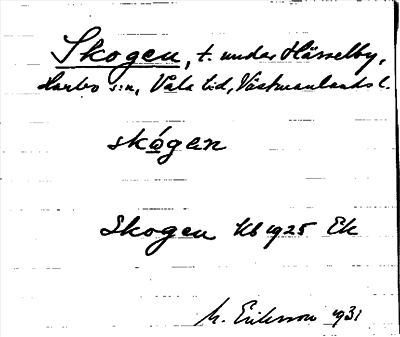 Skogen, t. under Hässelby,
Harbo s:n, Vala tid, Västmanlands l.
skógen
Skogen Kb 1925 Ek
M. Eriksson 1931